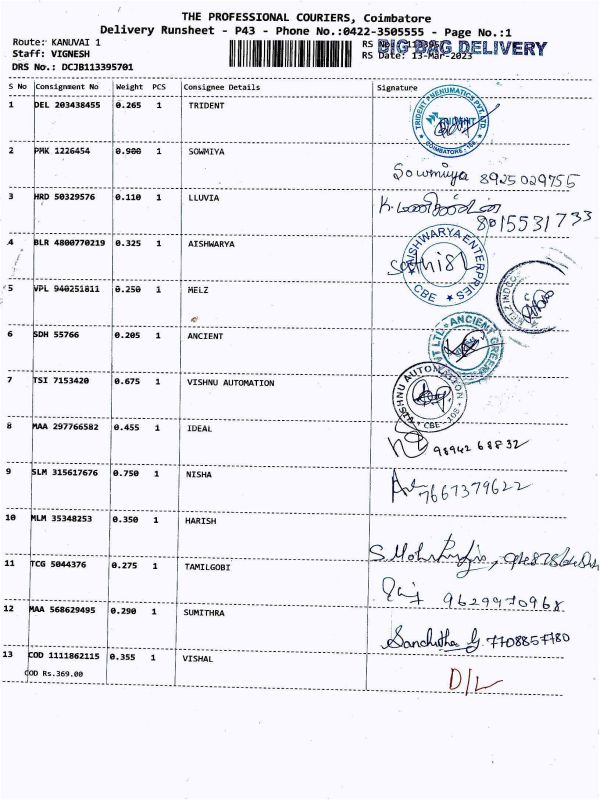 THE PROFESSIONAL COURIERS, Coimbatore
Delivery Runsheet - P43 - Phone No.:0422-3505555 - Page No.:1
Route: KANUVAI 1
Staff: VIGNESH
DRS No.: DCJB113395701
RS No.:
BIG BAG DELIVERY
RS Date: 13-Mar-2023
S No Consignment No Weight PCS Consignee Details Signature
1 DEL 203438455 0.265 1 TRIDENT
TRIDENT PNEUMATICS PVT. LTD
TRIDENT
COIMBATORE
2 PMK 1226454 0.900 1 SOWMIYA
Sowmiya 8925029755
3 HRD 50329576 0.110 1 LLUVIA
8015531733
4 BLR 4800770219 0.325 1 AISHWARYA
AISHWARYA ENTERPRISES
CBE
5 VPL 940251811 0.250 1 MELZ
6 SDH 55766 0.205 1 ANCIENT
ANCIENT GREEN
7 TSI 7153420 0.675 1 VISHNU AUTOMATION
VISHNU AUTOMATION
CBE
8 MAA 297766582 0.455 1 IDEAL
9894268832
9 SLM 315617676 0.750 1 NISHA
7667379622
10 MLM 35348253 0.350 1 HARISH
11 TCG 5044376 0.275 1 TAMILGOBI
9629970968
12 MAA 568629495 0.290 1 SUMITHRA
7708857780
13 COD 1111862115 0.355 1 VISHAL
COD Rs.369.00
D/L